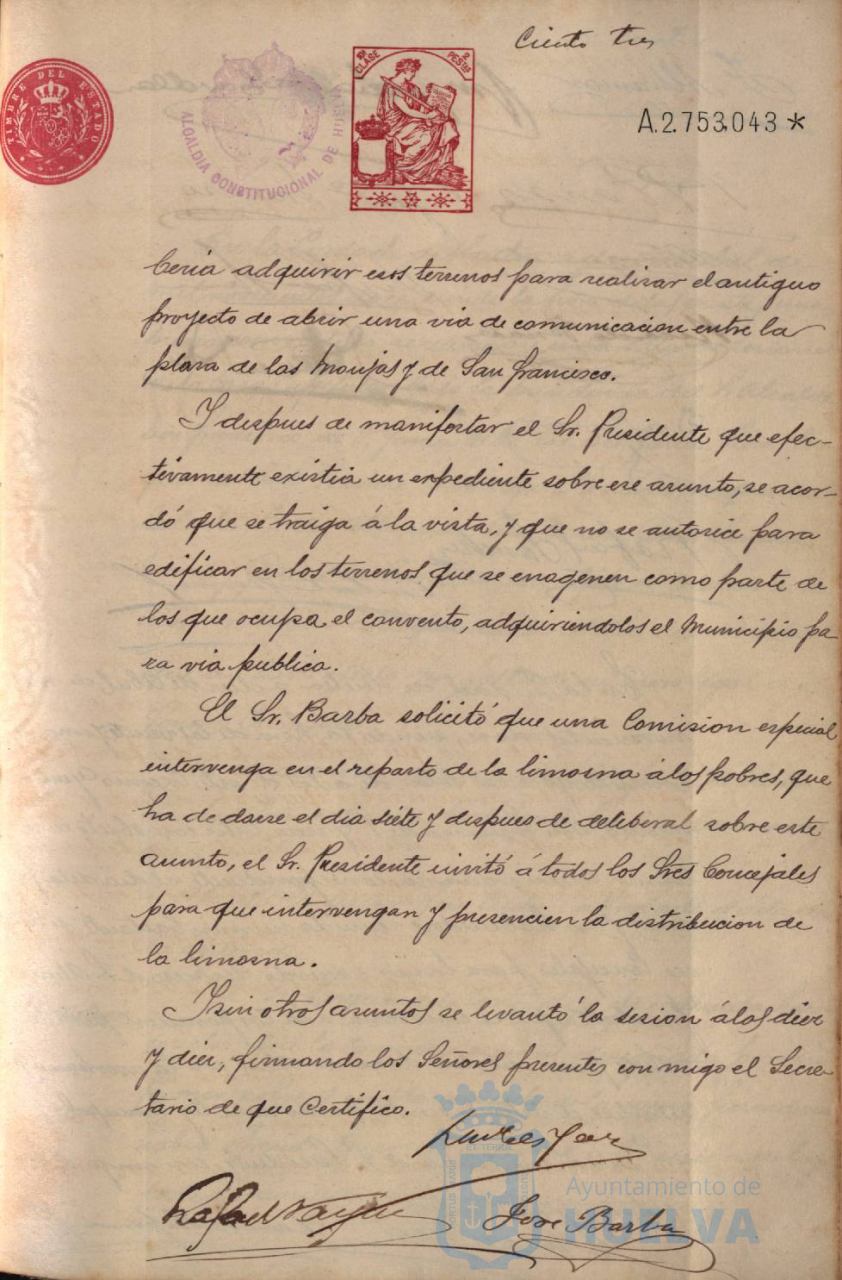 Ciento tres
TIMBRE DEL ESTADO
ALCALDIA CONSTITUCIONAL DE HUELVA
CLASE
2 PESTAS
A.2.753.043 *
beria adquirir esos terrenos para realizar el antiguo
proyecto de abrir una via de comunicacion entre la
plaza de las Monjas y de San Francisco.
Y despues de manifestar el Sr. Presidente que efec-
tivamente existia un expediente sobre ese asunto, se acor-
dó que se traiga á la vista, y que no se autorice para
edificar en los terrenos que se enagenen como parte de
los que ocupa el convento, adquiriendolos el Municipio pa
ra via publica.
El Sr. Barba solicitó que una Comision especial
intervenga en el reparto de la limosna á los pobres, que
ha de darse el dia siete y despues de deliberar sobre este
asunto, el Sr. Presidente invitó á todos los Sres Concejales
para que intervengan y presencien la distribucion de
la limosna.
Y sin otros asuntos se levantó la sesion á las diez
y diez, firmando los Señores presentes con migo el Secre-
tario de que Certifico.
Rafael
Jose Barba
Ayuntamiento de
HUELVA